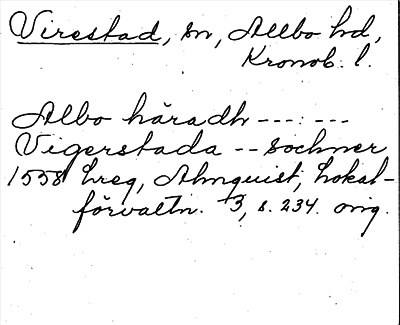 Virestad, sn, Allbo hd,
Kronob. l.
Albo häradh ---:---
Vigerstada -- sochner
1558 hreg, Almquist, Lokal-
förvaltn. 3, s. 234. orig.